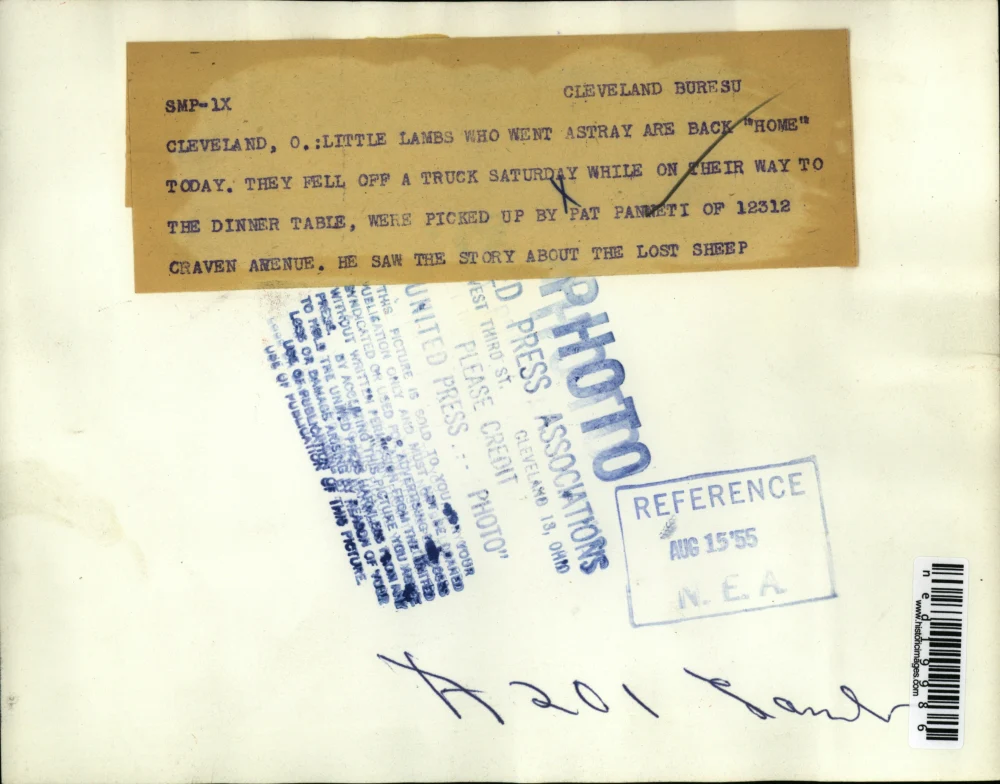 SMP-1X
CLEVELAND BURESU
CLEVELAND, O.:LITTLE LAMBS WHO WENT ASTRAY ARE BACK "HOME"
TODAY. THEY FELL OFF A TRUCK SATURDAY WHILE ON THEIR WAY TO
THE DINNER TABLE, WERE PICKED UP BY PAT PANNETI OF 12312
CRAVEN AVENUE. HE SAW THE STORY ABOUT THE LOST SHEEP
PHOTO
PRESS ASSOCIATIONS
WEST THIRD ST. CLEVELAND 13, OHIO
PLEASE CREDIT
UNITED PRESS PHOTO"
THIS PICTURE IS SOLD TO YOU FOR YOUR
PUBLICATION ONLY AND MUST
SYNDICATED OR USED FOR ADVERTISING
WITHOUT WRITTEN FROM THE UNITED
PRESS. BY ACCEPTING THIS PICTURE YOU
TO HOLD THE UNITED PRESS HARMLESS FROM ANY
LOSS OR DAMAGE ARISING BY REASON OF YOUR
USE OF PUBLICATION OF THIS PICTURE.
REFERENCE
AUG 15 '55
N. E. A.
201 Lamb
ned19986
www.historicimages.com